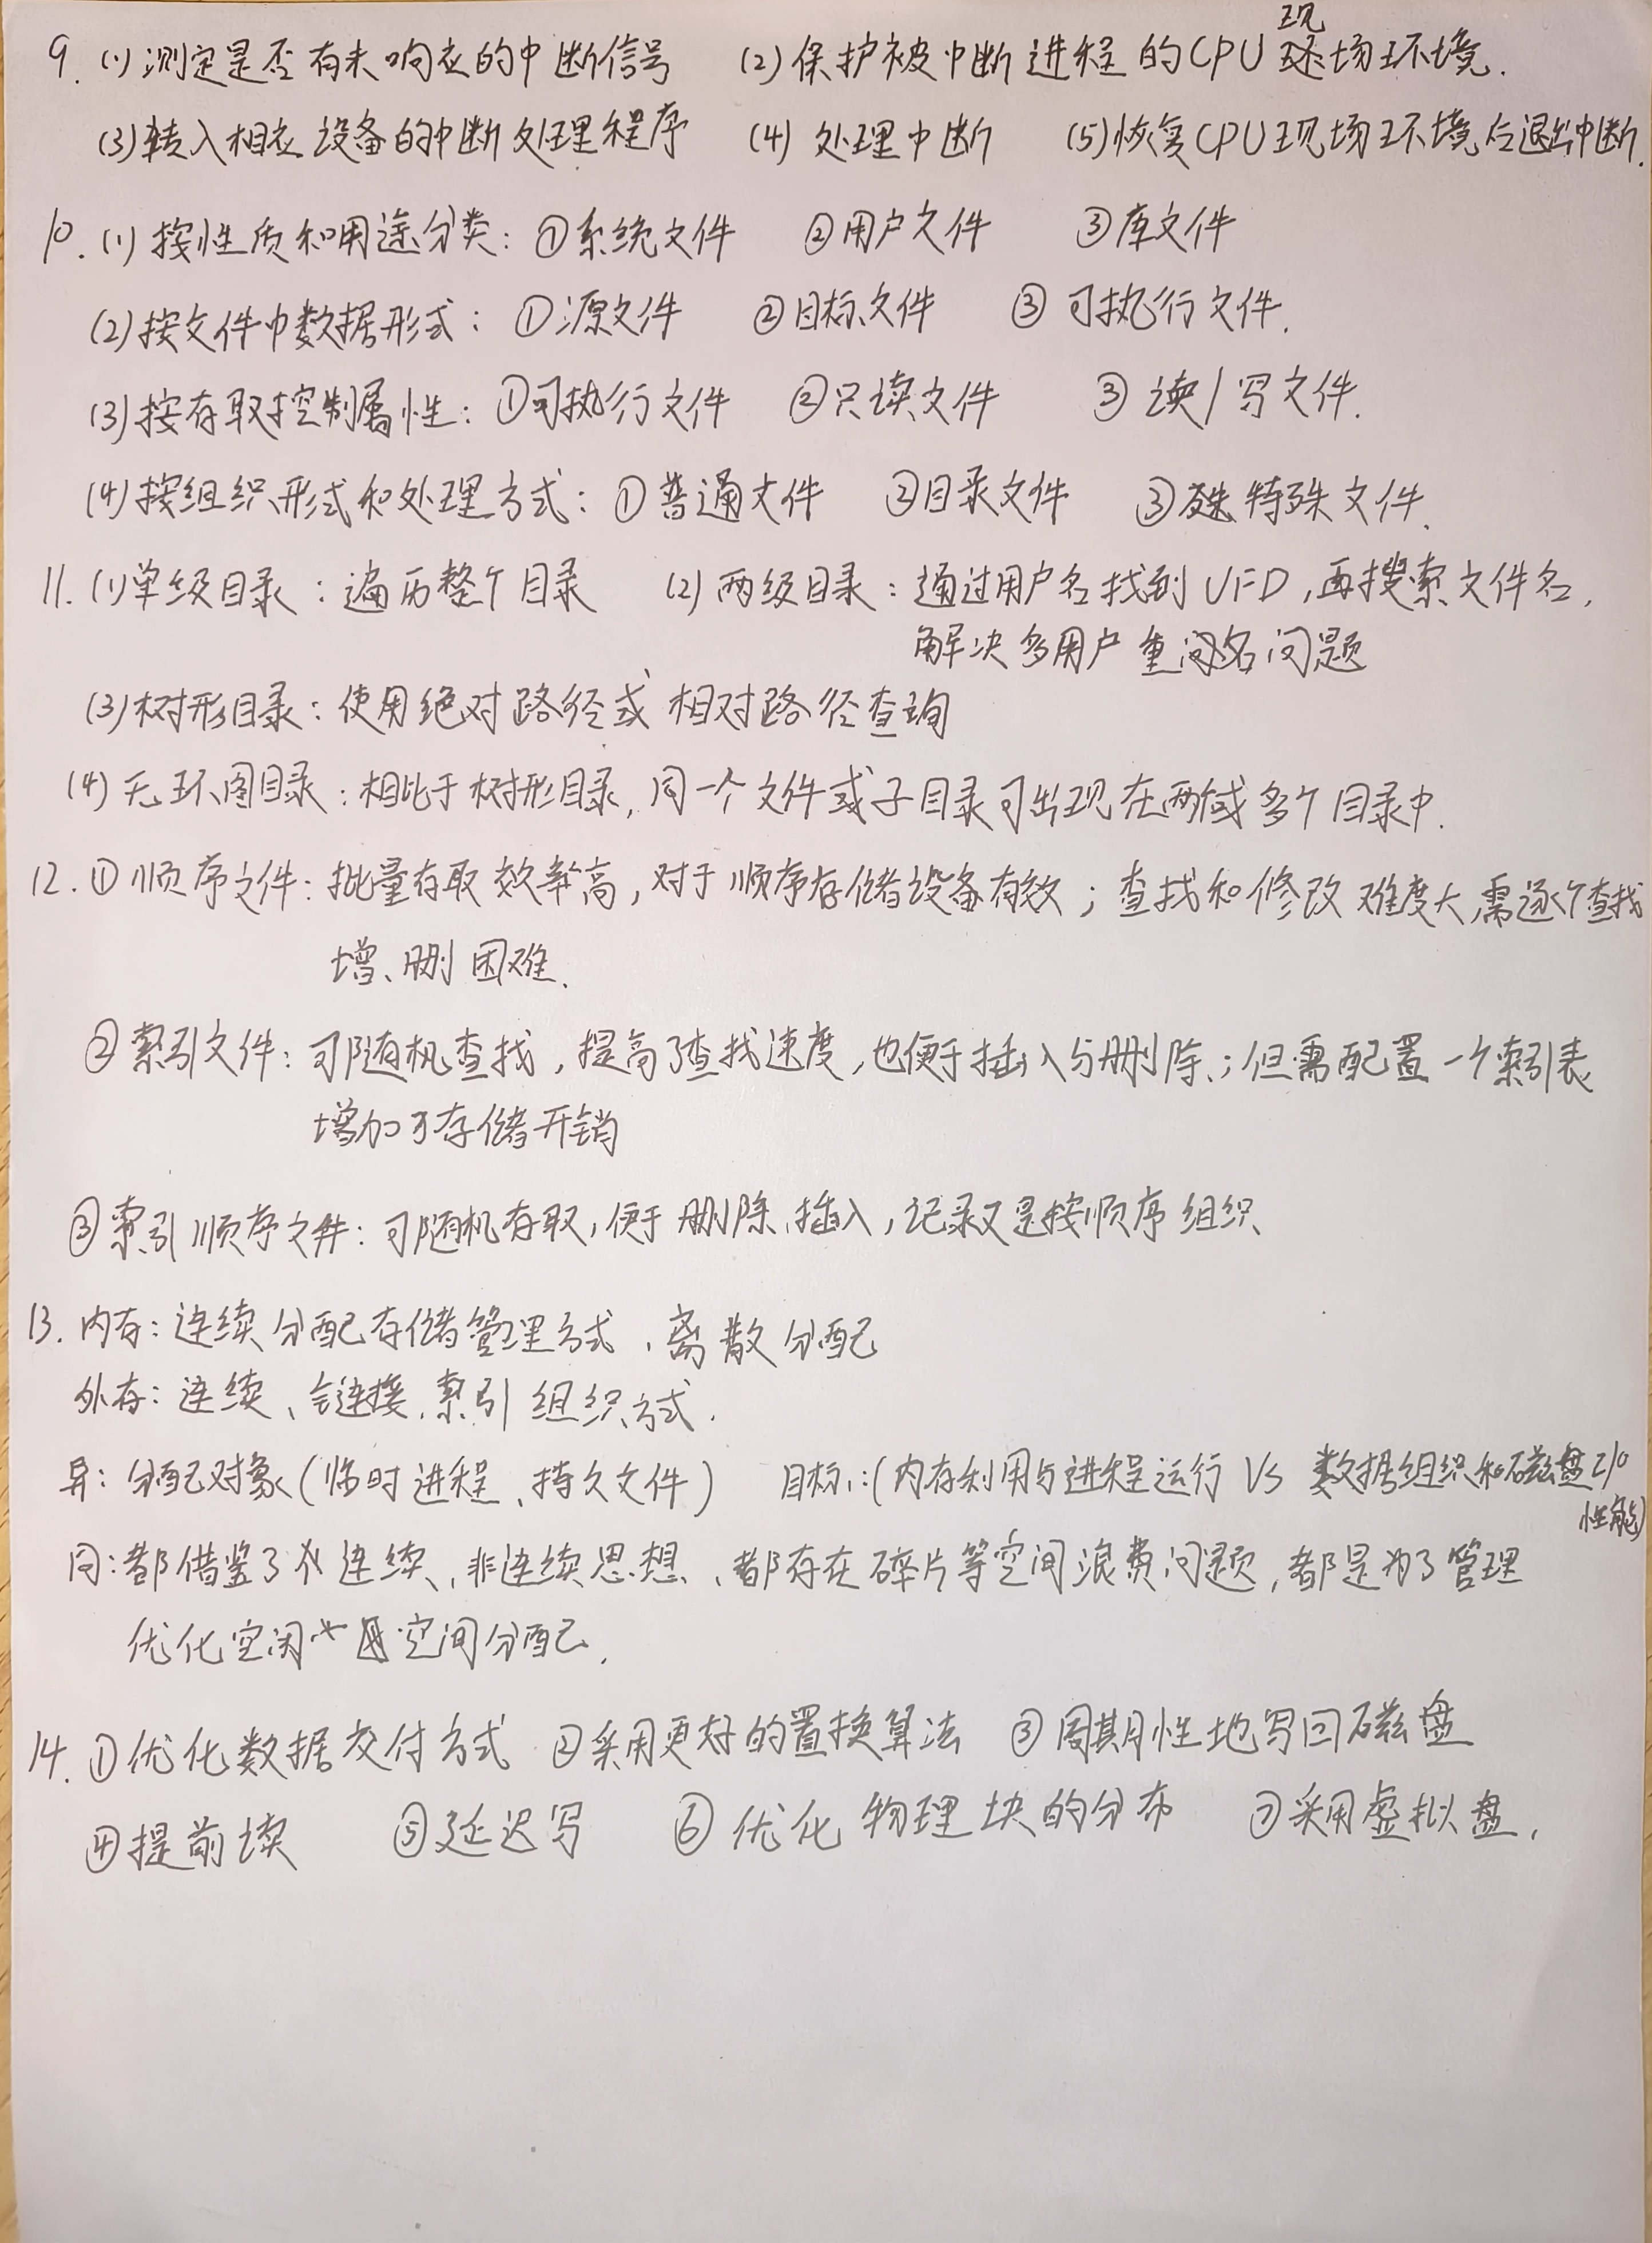 9. (1) 测定是否有未响应的中断信号 (2) 保护被中断进程的CPU现场环境.
(3) 转入相应设备的中断处理程序 (4) 处理中断 (5) 恢复CPU现场环境后退出中断.
10. (1) 按性质和用途分类: ①系统文件 ②用户文件 ③库文件
(2) 按文件中数据形式: ①源文件 ②目标文件 ③可执行文件.
(3) 按存取控制属性: ①可执行文件 ②只读文件 ③读/写文件.
(4) 按组织形式和处理方式: ①普通文件 ②目录文件 ③特殊文件.
11. (1) 单级目录: 遍历整个目录 (2) 两级目录: 通过用户名找到UFD, 再搜索文件名,
解决多用户重名问题
(3) 树形目录: 使用绝对路径或相对路径查询
(4) 无环图目录: 相比于树形目录, 同一个文件或子目录可出现在两个或多个目录中.
12. ①顺序文件: 批量存取效率高, 对于顺序存储设备有效; 查找和修改难度大, 需逐个查找
增、删困难.
②索引文件: 可随机查找, 提高了查找速度, 也便于插入与删除; 但需配置一个索引表
增加了存储开销
③索引顺序文件: 可随机存取, 便于删除、插入, 记录又是按顺序组织
13. 内存: 连续分配存储管理方式、离散分配
外存: 连续、链接、索引组织方式.
异: 分配对象(临时进程、持久文件) 目标: (内存利用与进程运行 VS 数据组织和磁盘I/O
性能)
同: 都借鉴了连续、非连续思想、都存在碎片等空间浪费问题, 都是为了管理
优化空闲空间分配.
14. ①优化数据交付方式 ②采用更好的置换算法 ③周期性地写回磁盘
④提前读 ⑤延迟写 ⑥优化物理块的分布 ⑦采用虚拟盘.